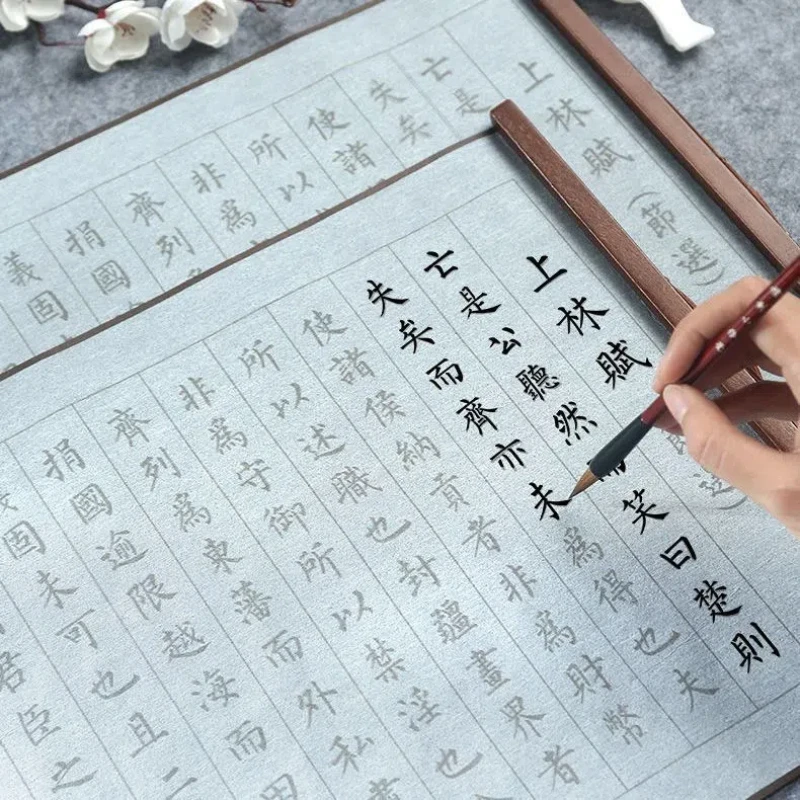 上林賦(節選)
亡是
失矣
使諸
所以
非為
齊列
捐國
義固
上林賦(節選)
亡是公聽然而笑曰楚則
失矣而齊亦未為得也夫
使諸侯納貢者非為財幣
所以述職也封疆畫界者
非為守御所以禁淫也
齊列為東藩而外私
捐國逾限越海而田
義固未可也且二
君臣之